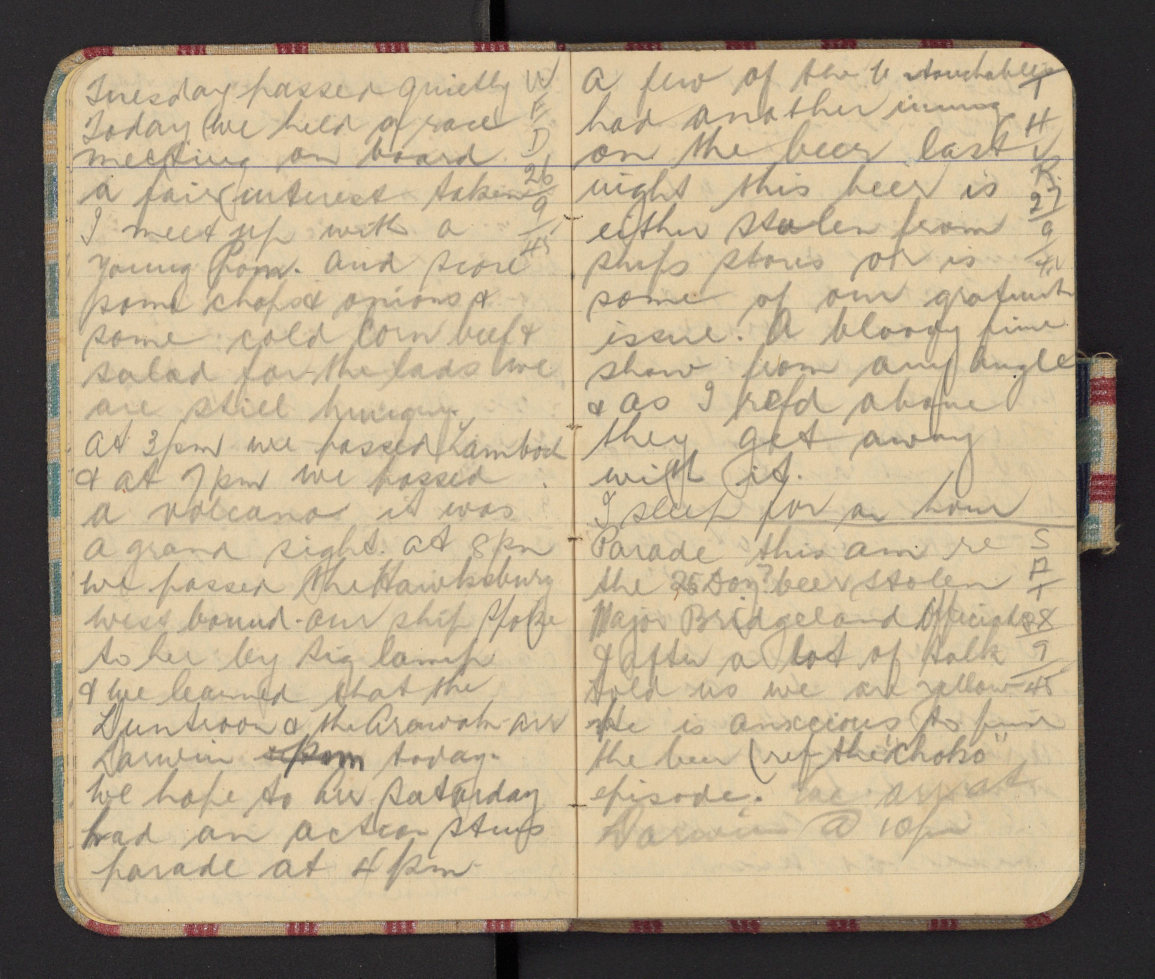 Tuesday passed quietly W
Today we held a race E
meeting on board D
a fair interest taken 26
I meet up with a 9
young Pom. and score 45
some chops & onions &
some cold Corn beef &
salad for the lads we
are still hungry.
at 3pm we passed Lambock
& at 7pm we passed
a volcano it was
a grand sight. at 8pm
we passed the Hawksbury
west bound. our ship spoke
to her by sig lamp
& we learned that the
Duntroon & the Arawata arr
Darwin today.
We hope to arr Saturday
had an action stns
parade at 4pm
a few of the Untouchables T
had another inning H
on the beer last U
night this beer is R.
either stolen from 27
ships stores or is 9
some of our gratuit 45
issue. A bloody fine
show from any angle
& as I refd above
they get away
with it.
I sleep for an hour
Parade this am re S
the 25 Doz? beer stolen A
Major Bridgeland Officiated T 28
& after a lot of talk 9
told us we are yellow 45
He is anxcious to find
the beer (ref the "choko"
episode. we arr at
Darwin @ 10pm